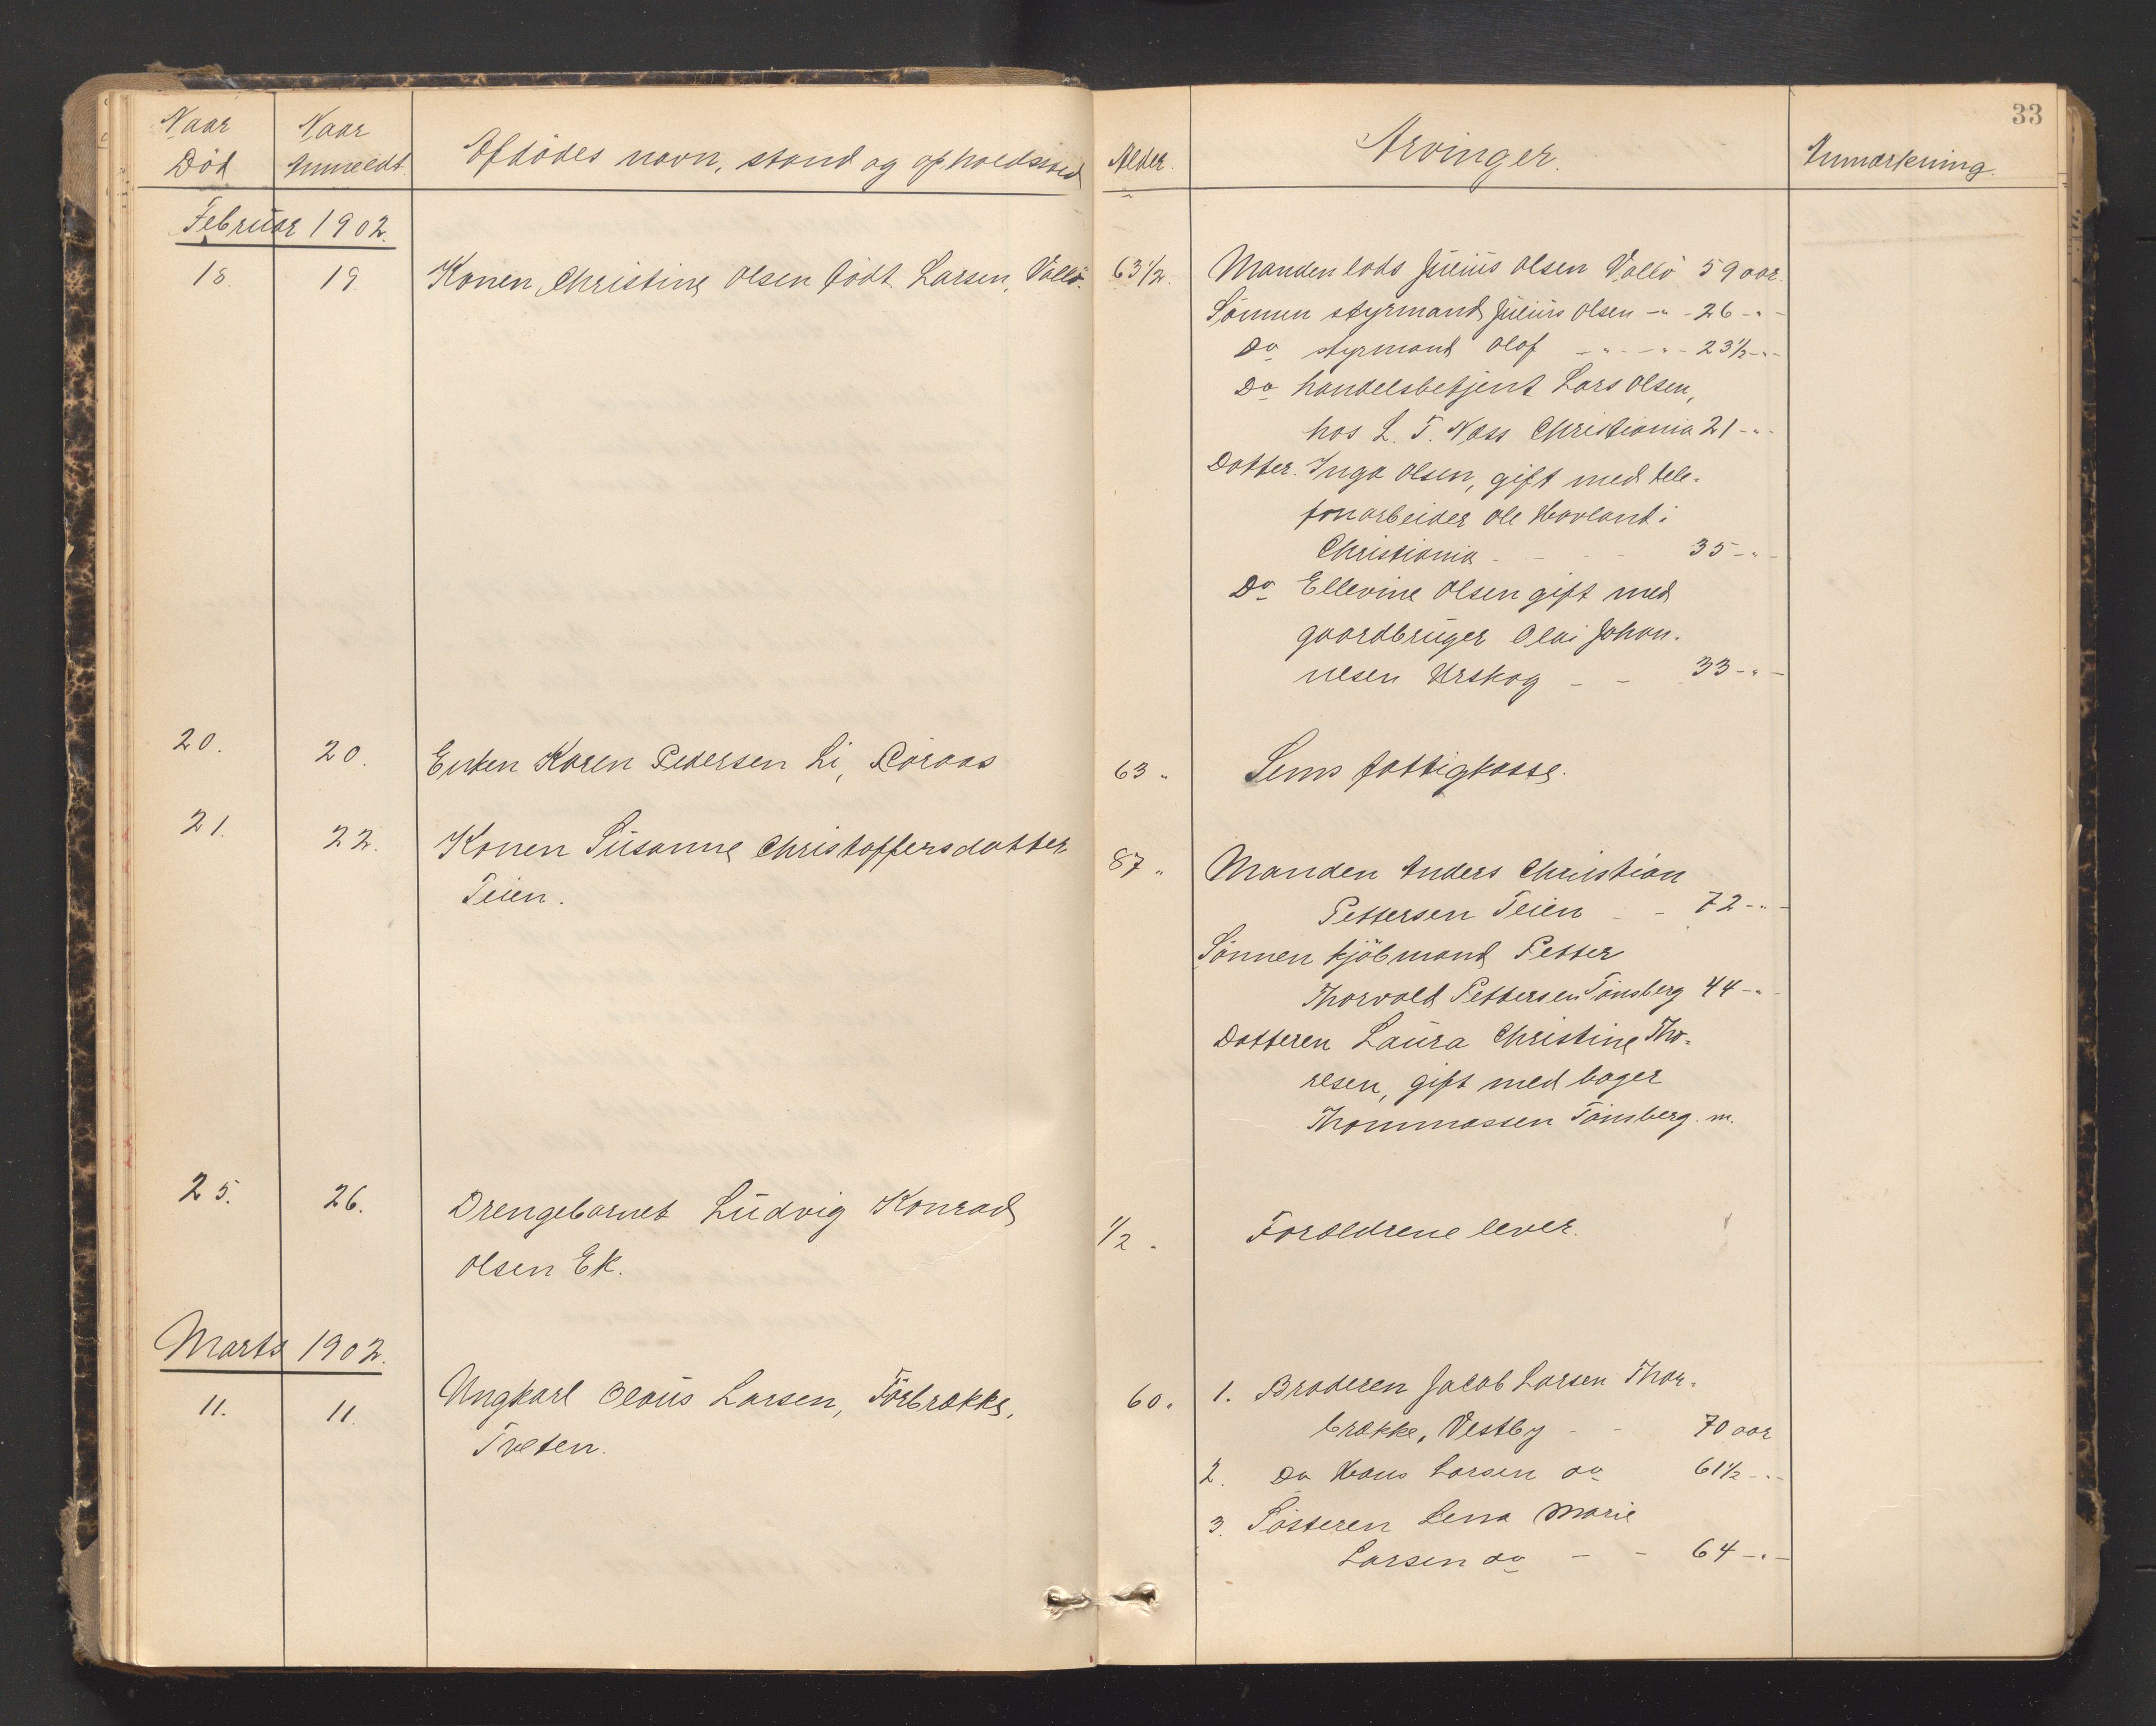 33
Naar Død
Naar Anmeldt
Afdödes navn, stand og opholdssted
Alder.
Arvinger.
Anmærkning.
Februar 1902.
18. 19. Konen Christine Olsen född Larsen, Vallö. 63 1/2. Manden lods Julius Olsen Vallö 59 aar.
Sönnen styrmand Julius Olsen -"- 26 -"-
Do styrmand Olaf -"- -"- 23 1/2 -"-
Do handelsbetjent Lars Olsen,
hos L. T. Næss Christiania 21 -"-
Datter. Inga Olsen, gift med tele-
fonarbeider Ole Havland i
Christiania - - - 35 -"-
Do Ellevine Olsen gift med
gaardbruger Olai Johan-
nesen Urskog - - 33 -"-
20. 20. Enken Karen Pedersen Li, Röraas 63 " Sems fattigkasse.
21. 22. Konen Susanne Christoffersdatter 87 " Manden Anders Christian
Teien. Pettersen Teien - - 72 -"-
Sönnen kjöbmand Petter
Thorvald Pettersen Tönsberg 44 -"-
Datteren Laura Christine Tho-
resen, gift med bager
Thommassen Tönsberg. m.
25. 26. Drengebarnet Ludvig Konrad 1/2 " Forældrene lever.
Olsen Ek.
Marts 1902.
11. 11. Ungkarl Olaus Larsen, Torbrække, 60 " 1. Broderen Jacob Larsen Thor-
Tveten. brække, Vestby - - 70 aar
2. Do Hans Larsen do 61 1/2 -"-
3. Sösteren Lena Marie
Larsen do - - 64 -"-